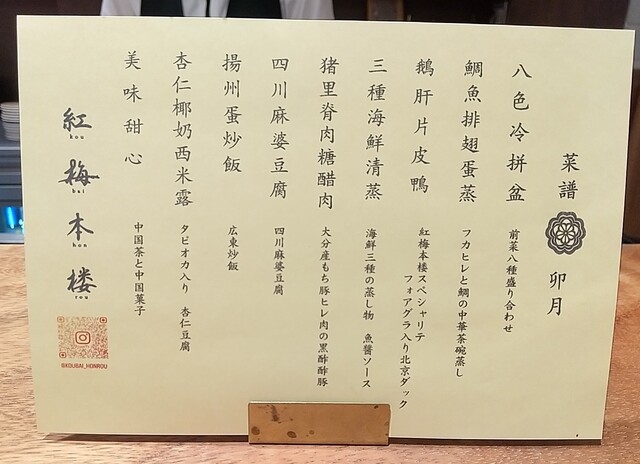 菜譜 卯月
八色冷拼盆 前菜八種盛り合わせ
鯛魚排翅蛋蒸 フカヒレと鯛の中華茶碗蒸し
鵝肝片皮鴨 紅梅本楼スペシャリテ
フォアグラ入り北京ダック
三種海鮮清蒸 海鮮三種の蒸し物 魚醬ソース
猪里脊肉糖醋肉 大分産もち豚ヒレ肉の黒酢酢豚
四川麻婆豆腐 四川麻婆豆腐
揚州蛋炒飯 広東炒飯
杏仁椰奶西米露 タピオカ入り 杏仁豆腐
美味甜心 中国茶と中国菓子
紅梅本楼
kou
bai
hon
rou
@KOUBAI_HONROU